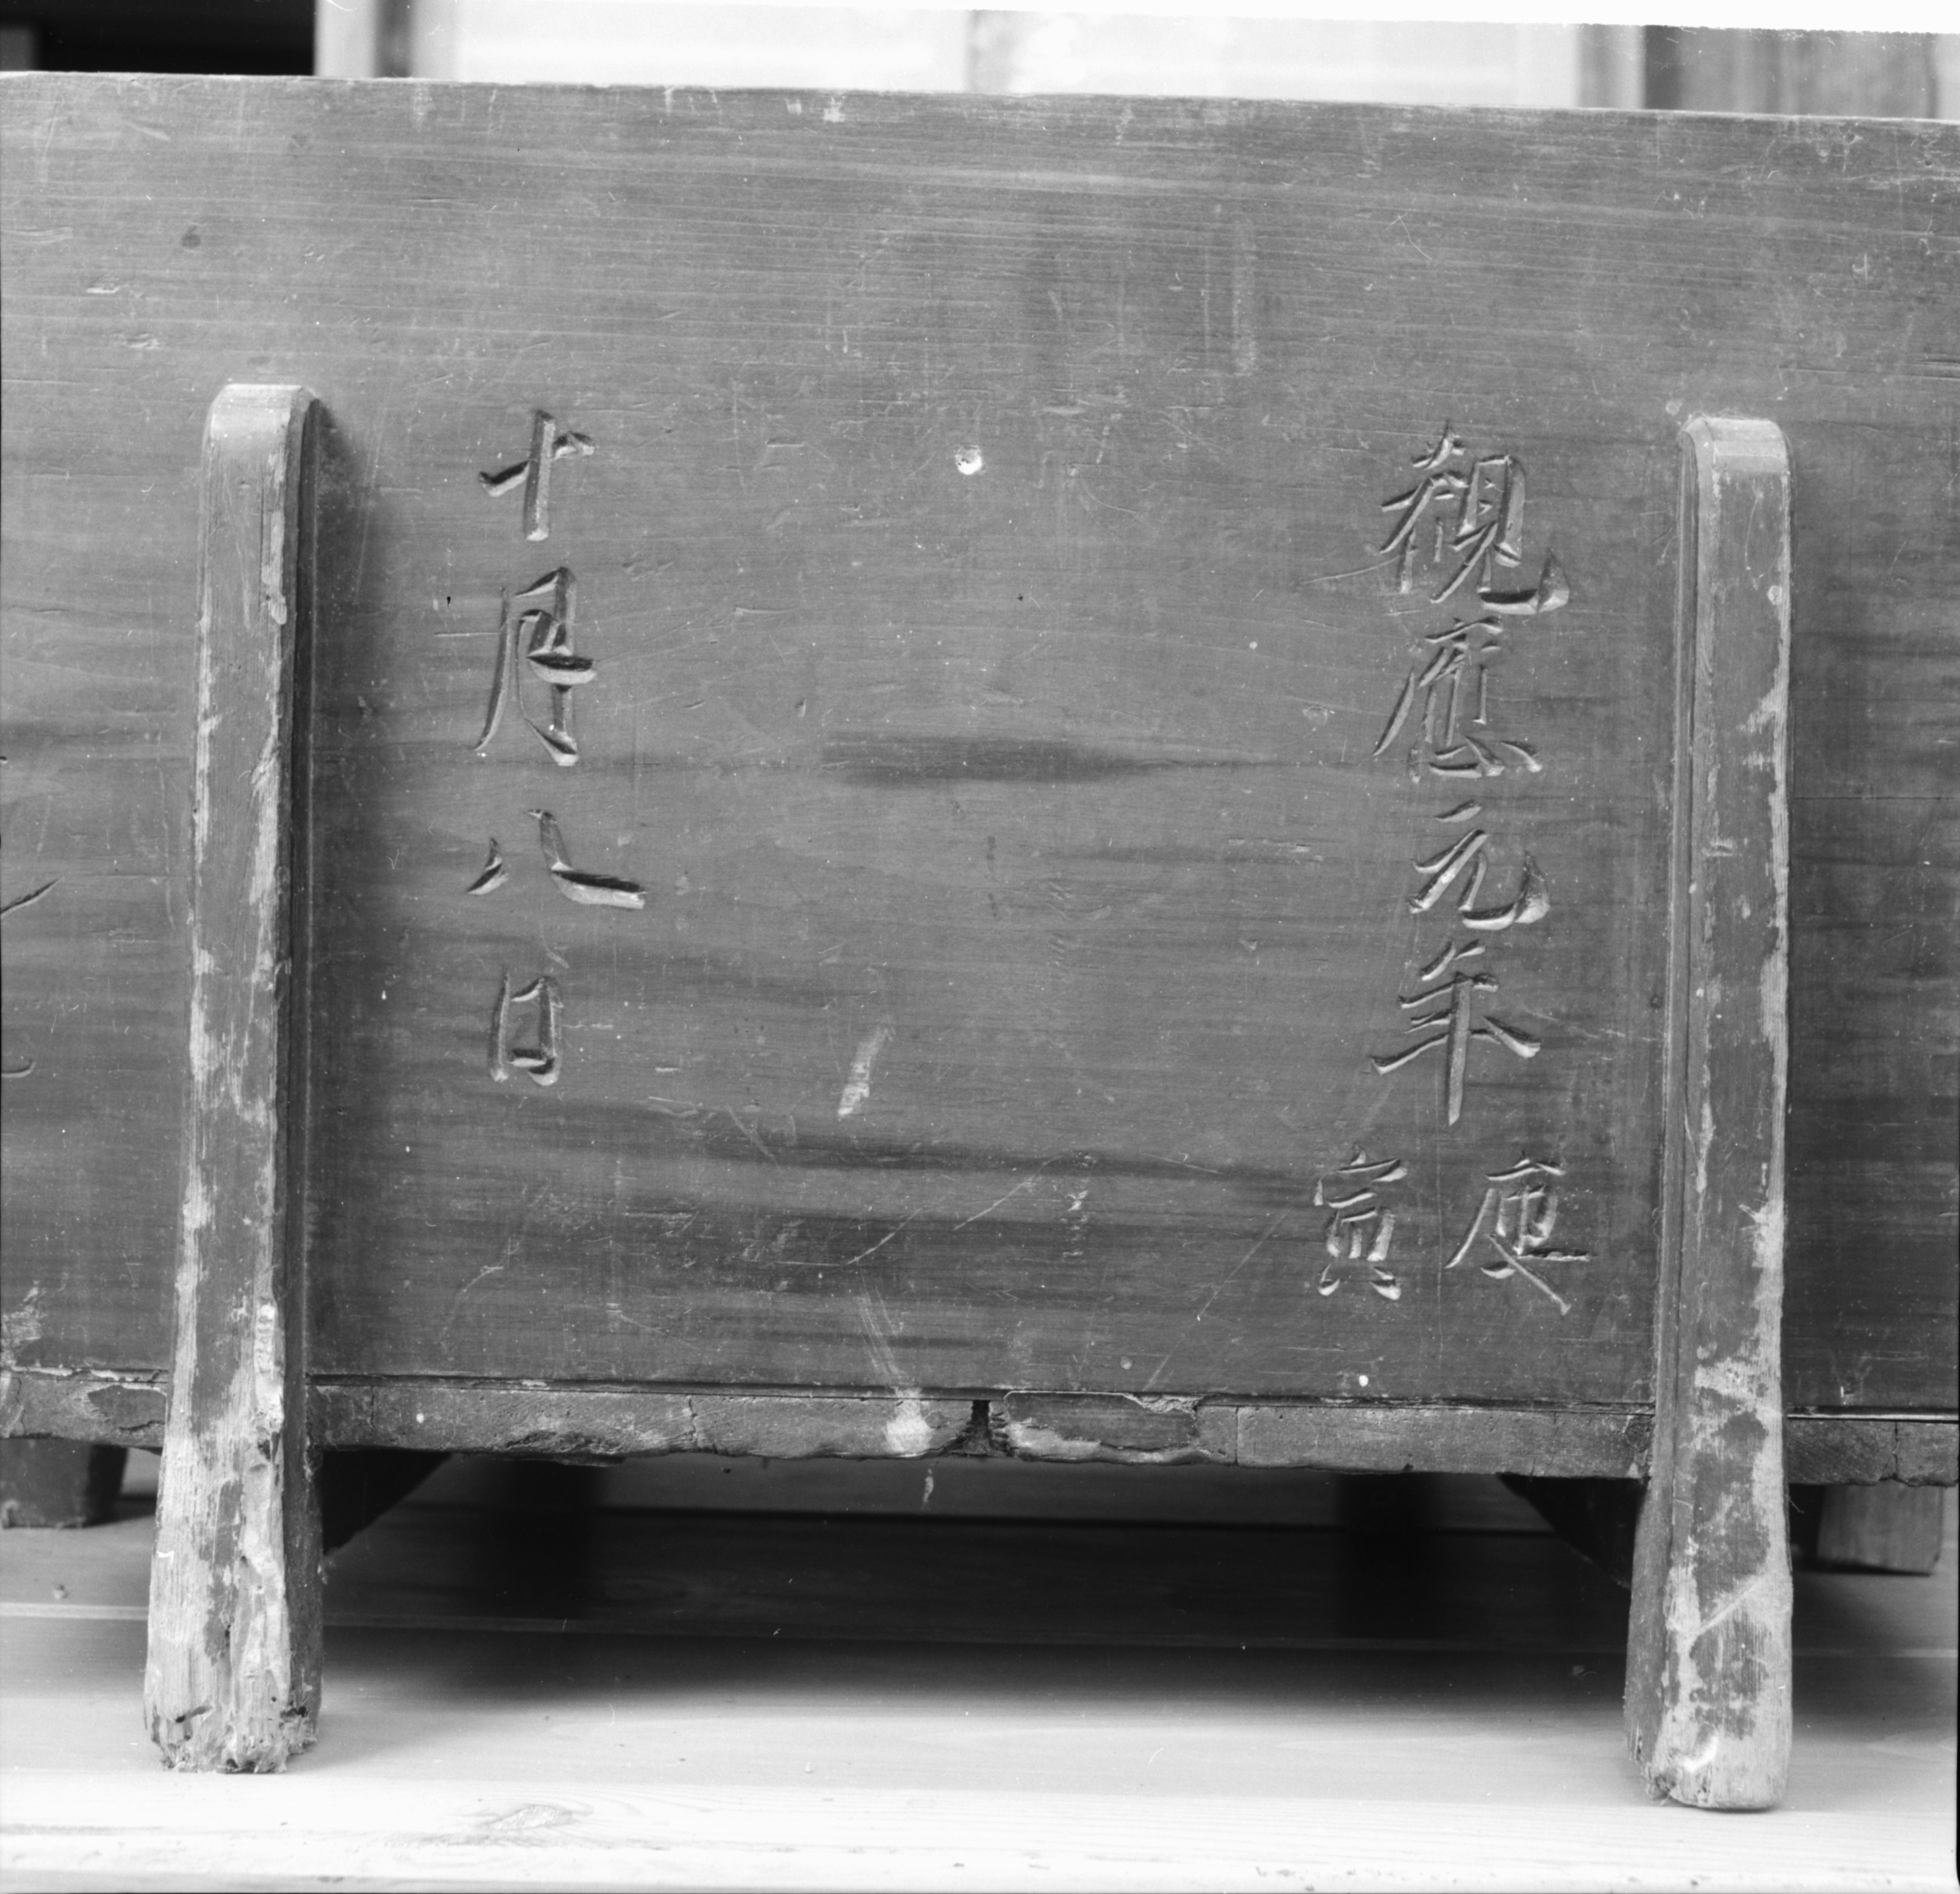 観應元年庚寅
十月八日